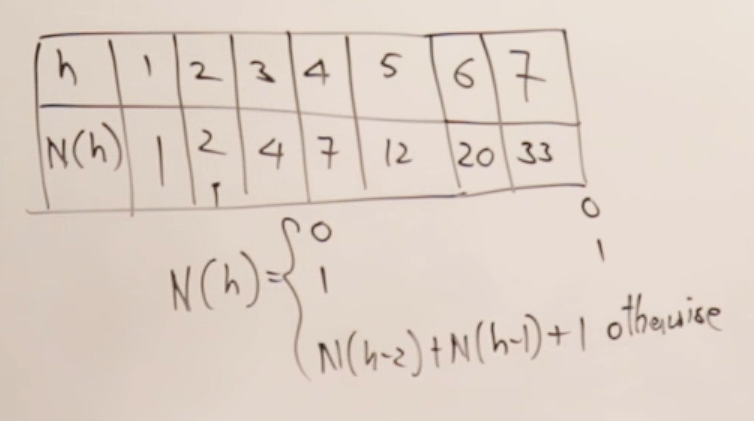 h 1 2 3 4 5 6 7
N(h) 1 2 4 7 12 20 33
N(h)= { 0 0
1 1
N(h-2)+N(h-1)+1 otherwise